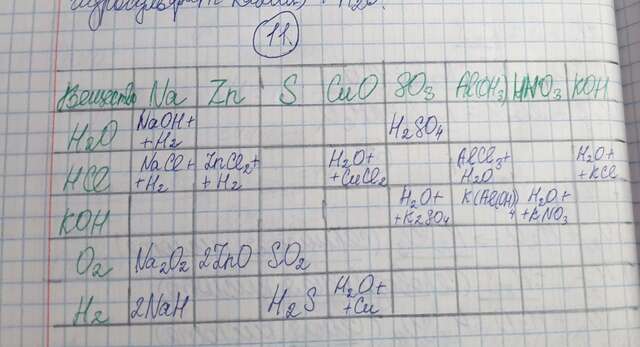 гидросульфат калия) + H₂O.
11.
Вещество Na Zn S CuO SO₃ Al(OH)₃ HNO₃ KOH
H₂O NaOH + + H₂ H₂SO₄
HCl NaCl + + H₂ ZnCl₂ + + H₂ H₂O + + CuCl₂ AlCl₃ + H₂O H₂O + + KCl
KOH H₂O + + K₂SO₄ K(Al(OH)₄ H₂O + + KNO₃
O₂ Na₂O₂ 2ZnO SO₂
H₂ 2NaH H₂S H₂O + + Cu